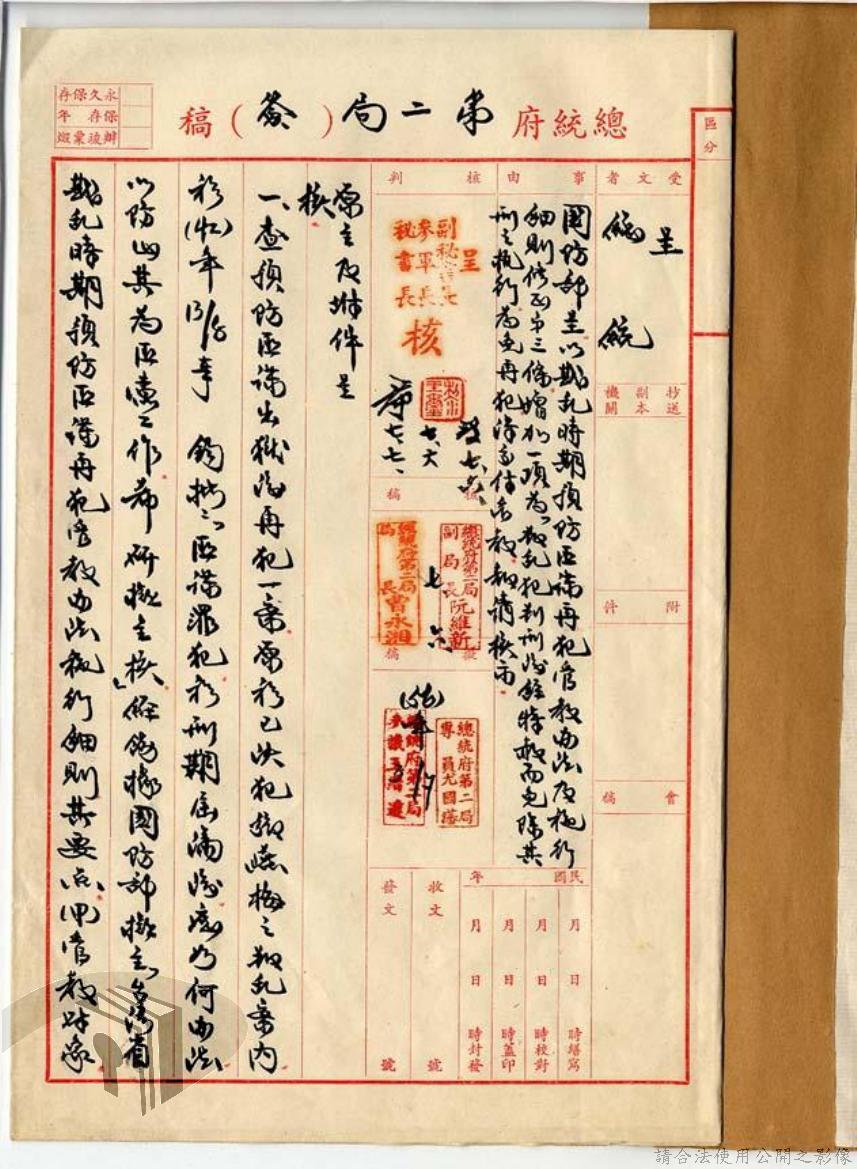 總統府第二局（簽）稿
永久保存
保存　年
辦後彙燬
區分
受文者
呈
總統
抄送副本機關
附件
會稿
事由
國防部呈以戡亂時期預防匪諜再犯管教辦法及施行
細則修正第三條增加一項為「叛亂犯判刑後經特赦而免除其
刑之執行為免再犯得交付管教」報請核示
核判
呈
副秘書長
參軍長
秘書長
核
七、六
七、七、
核稿
總統府第二局副局長阮維新
總統府第二局局長曹永湘
七 六
擬稿
(56)年
總統府第二局專員尤國藩
總統府第二局參議
民國　年
月　日　時繕寫
月　日　時校對
月　日　時蓋印
月　日　時封發
收文　號
發文　號
原文及附件呈
核
一、查預防匪諜出獄後再犯一案原於已決犯
之叛亂案內
於(42)年13/8奉　鈞批「匪諜罪犯於刑期屆滿後應如何辦法
以防止其為匪憲工作希研擬呈核」經飭據國防部擬呈台灣省
戡亂時期預防匪諜再犯管教辦法施行細則其要點、(甲)管教對象
請合法使用公開之影像